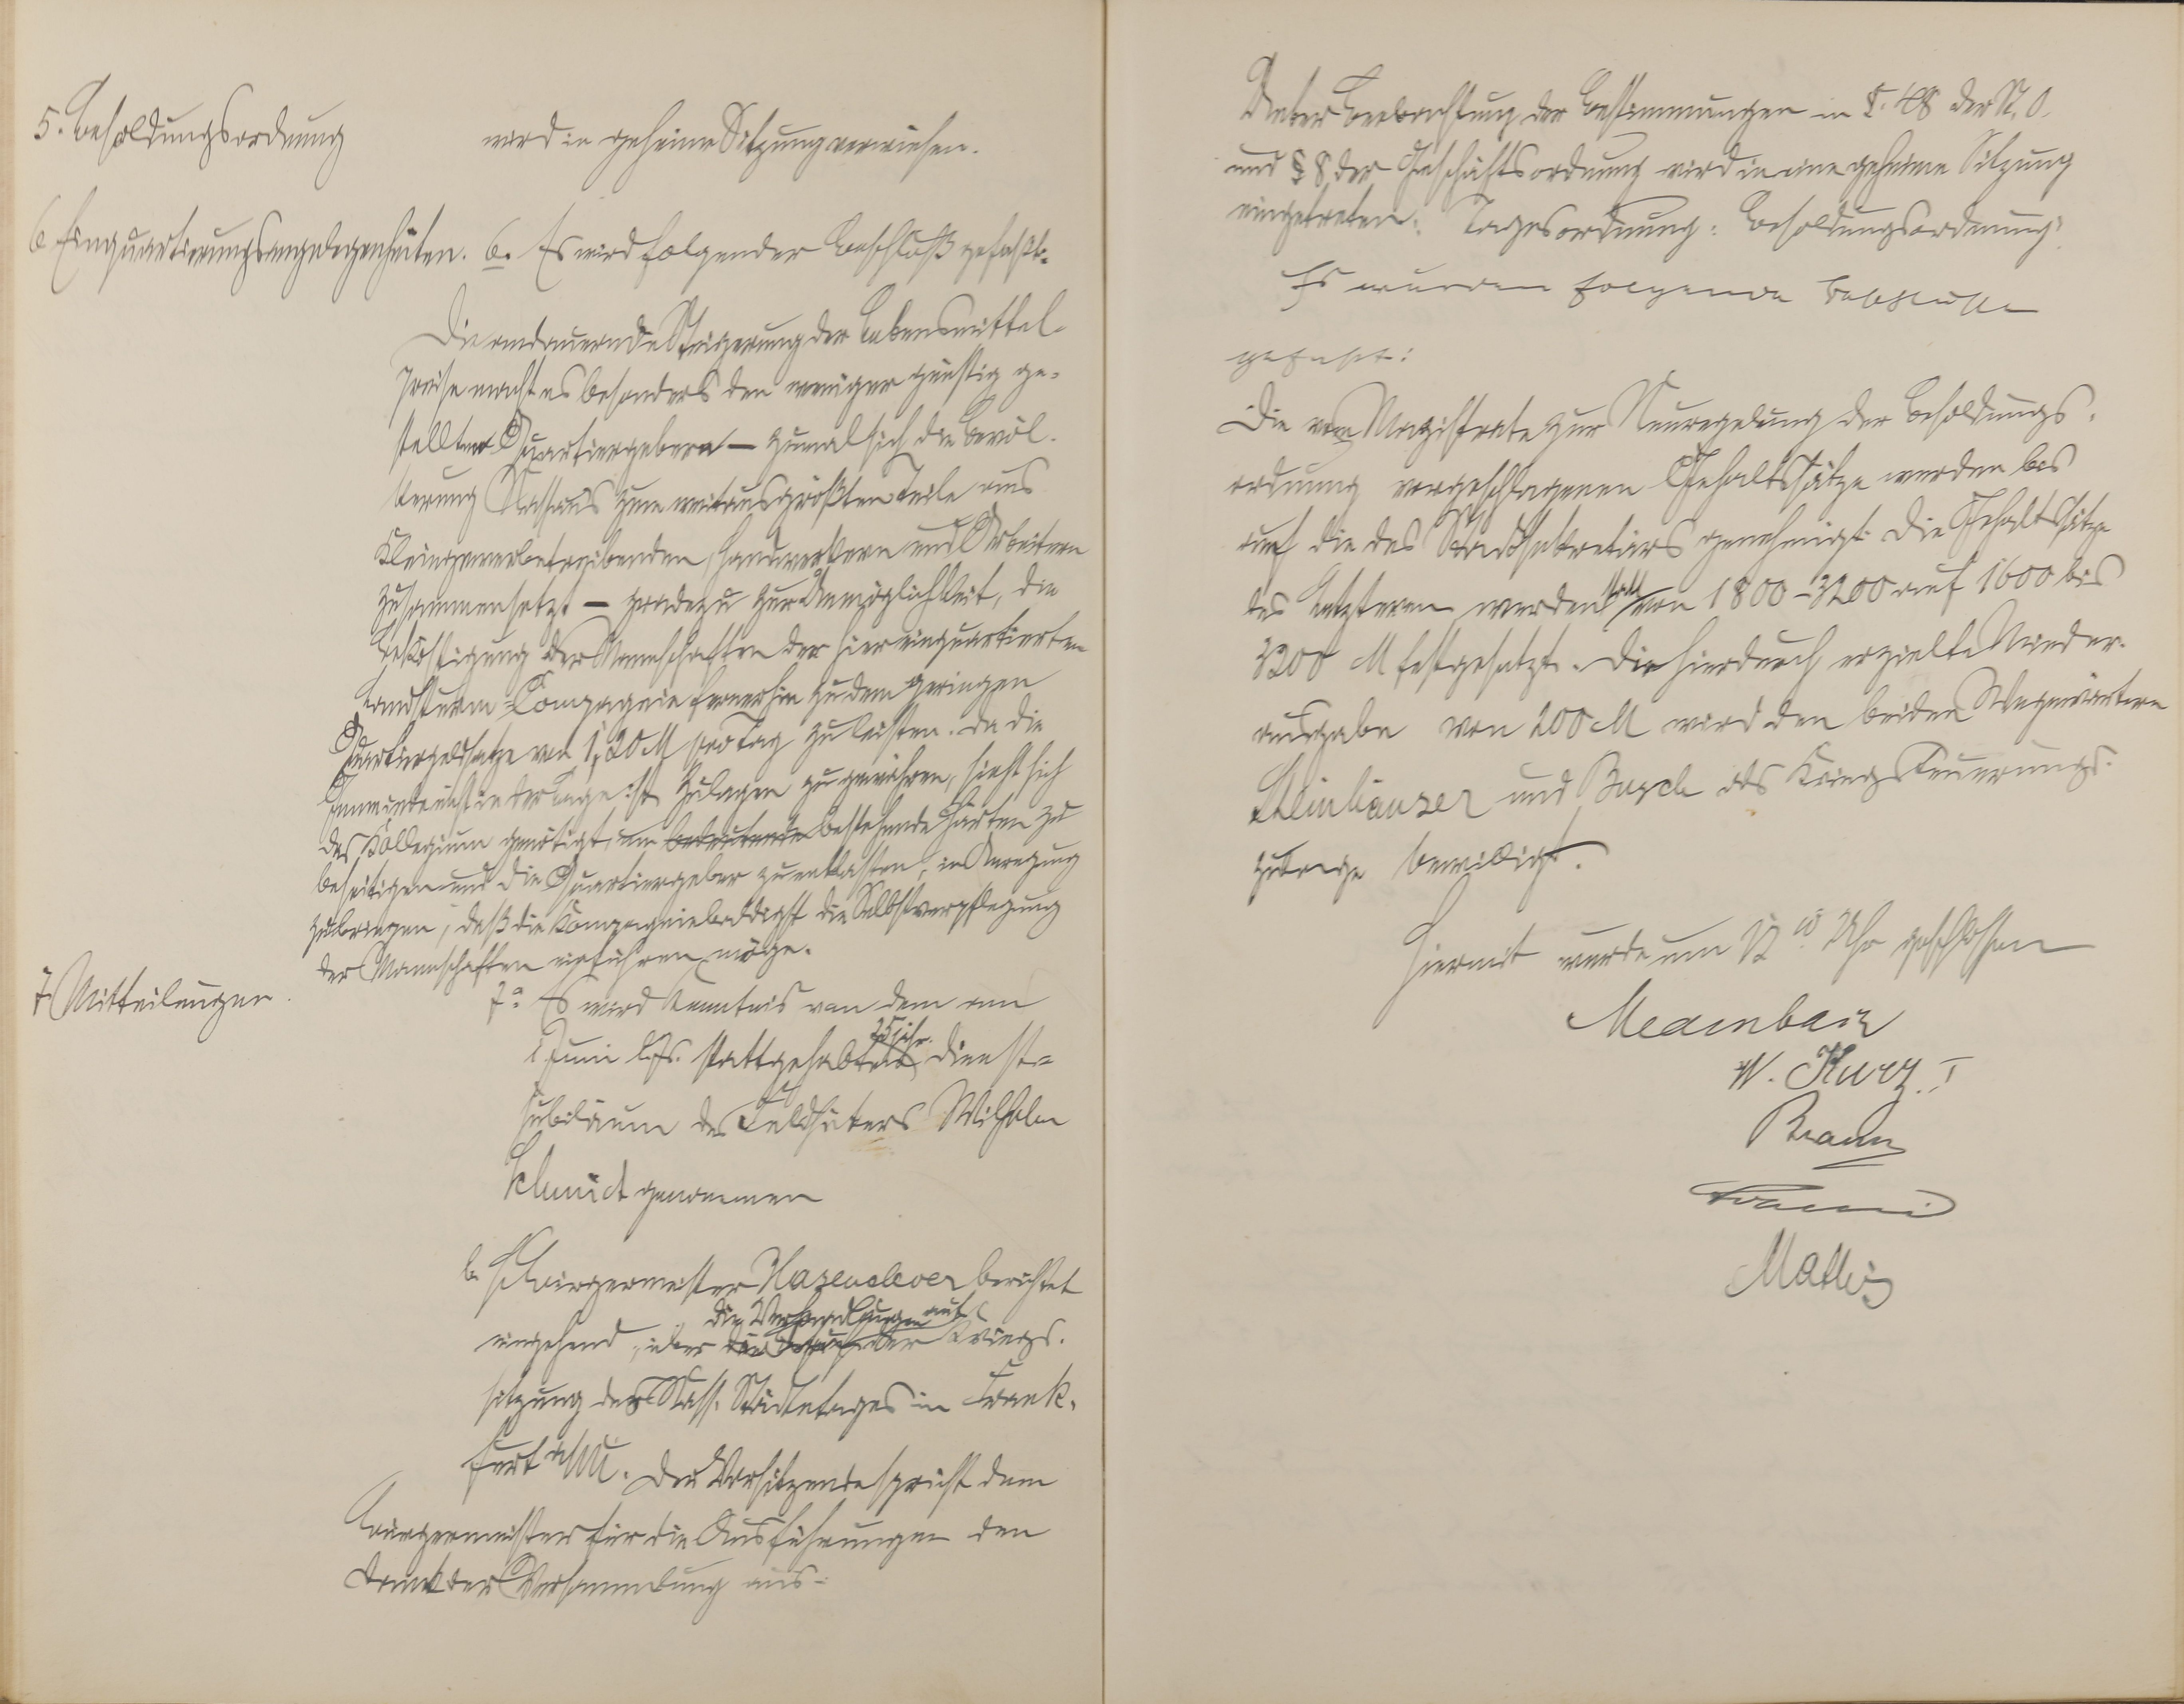 5. Besoldungsordnung
wird in geheime Sitzung verwiesen.
6 Einquartierungsangelegenheiten.
6. Es wird folgender Beschluß gefaßt:
Die andauernde Steigerung der Lebensmittel-
preise macht es besonders den weniger günstig ge-
stellten Quartiergebern — zumal sich die Bevöl-
kerung Nassaus zum weitaus größten Teile aus
Kleingewerbetreibenden, Handwerkern und Arbeitern
zusammensetzt — geradezu zur Unmöglichkeit, die
Beköstigung der Mannschaften der hier einquartierten
Landsturm-Compagnie fernerhin zu dem geringen
Quartiergeldsatze von 1,20 M pro Tag zu leisten. Da die
Gemeinde nicht in der Lage ist Zulagen zu gewähren, sieht sich
das Kollegium genötigt, um bestehende Härten zu
beseitigen und die Quartiergeber zu entlasten, in Anregung
zu bringen, daß die Kompagnie baldigst die Selbstverpflegung
der Mannschaften einführen möge.
7 Mitteilungen.
7a Es wird Kenntnis von dem am
1. Juni lfs. stattgehabten 25jähr. Dienst-
jubiläum des Feldhüters Wilhelm
Schmidt genommen
b. H. Bürgermeister Hasenclever berichtet
eingehend über die Verhandlungen auf der Kriegs-
sitzung des Nass. Städtetages in Frank-
furt a/M. Der Vorsitzende spricht dem
Bürgermeister für die Ausführungen den
Dank der Versammlung aus.
Unter Beobachtung der Bestimmungen in §. 48 der St. O.
und § 8 der Geschäftsordnung wird in eine geheime Sitzung
eingetreten. Tagesordnung: Besoldungsordnung.
Es wurden folgende Beschlüsse
gefaßt:
Die vom Magistrate zur Neuregelung der Besoldungs-
ordnung vorgeschlagenen Gehaltssätze werden bis
auf die des Stadtsekretärs genehmigt. Die Gehaltssätze
des letzteren werden statt von 1800-3200 auf 1600 bis
3200 M festgesetzt. Die hierdurch erzielte Minder-
ausgabe von 200 M wird den beiden Wegewärtern
Steinhäuser und Busch als Kriegsteuerungs-
zulage bewilligt.
Hiermit wurde um Uhr geschlossen
Medenbach
W. Kurz. I
Braun
Mathis